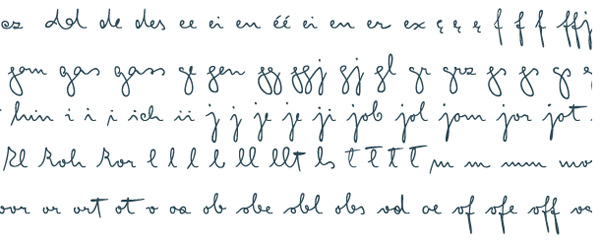 dd de des ee ei en éé ei en er ex ę ę ę f f f ffj
gom gas gass ge gen gg ggj gj gl gr grz gs gs
hin i i i ich ii j j je je ji job jol jom jor jot
Kl Koh Kor l l l l ll llt ls t t t t m m mm mo
or ort ot o oa ob obe obl obs od oe of ofe off